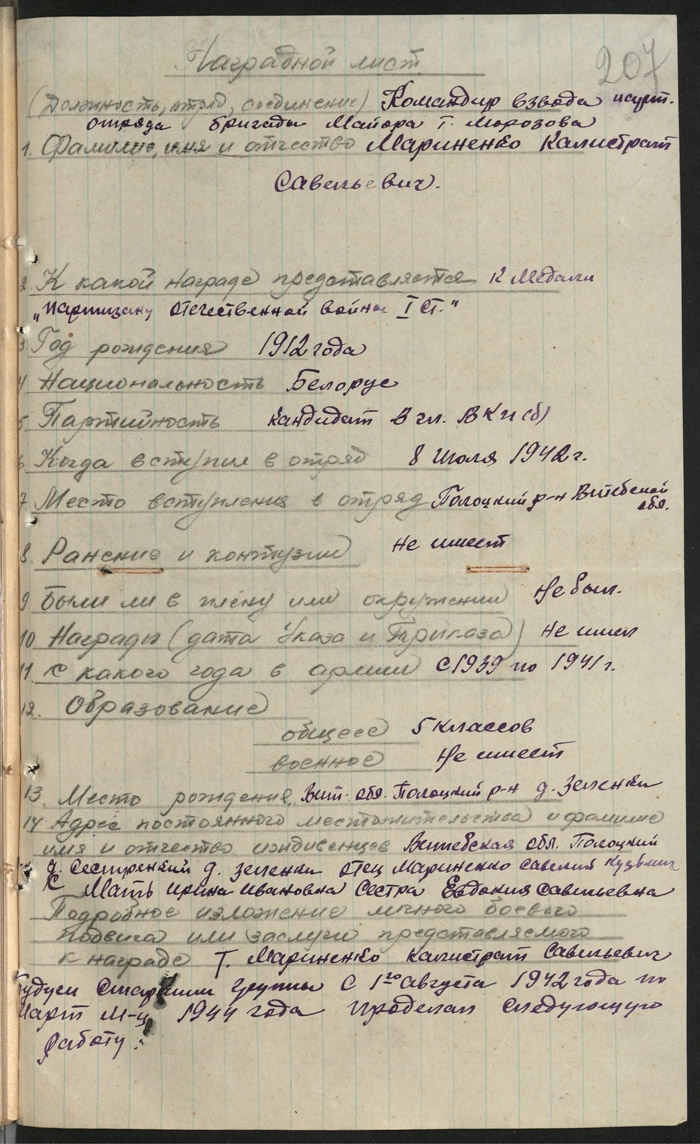 207
Наградной лист
(Должность, отряд, соединение) Командир взвода
отряда бригады Майора т. Морозова
1. Фамилие, имя и отчество Мариненко Калистрат
Савельевич.
2. К какой награде представляется к Медали
„Партизану Отечественной войны I ст."
3. Год рождения 1912 года
4. Национальность Белорус
5. Партийность кандидат в чл. ВКП(б)
6. Когда вступил в отряд 8 июля 1942 г.
7. Место вступления в отряд Полоцкий р-н Витебской
обл.
8. Ранение и контузии не имеет
9. Были ли в плену или окружении Не был.
10. Награды (дата Указа и Приказа) Не имел
11. С какого года в армии с 1939 по 1941 г.
12. Образование
общее 5 классов
военное Не имеет
13. Место рождения Вит. обл. Полоцкий р-н д. Зеленки
14. Адрес постоянного местожительства и фамилие
имя и отчество иждивенцев Витебская обл. Полоцкий
д. Зеленки отец Мариненко Савелий Кузьмич
Мать Ирина Ивановна Сестра Евдокия Савельевна
Подробное изложение личного боевого
подвига или заслуги представляемого
к награде Т. Мариненко Калистрат Савельевич
будучи Старшим группы С 1го августа 1942 года по
Март М-ц 1944 года проделал следующую
работу: